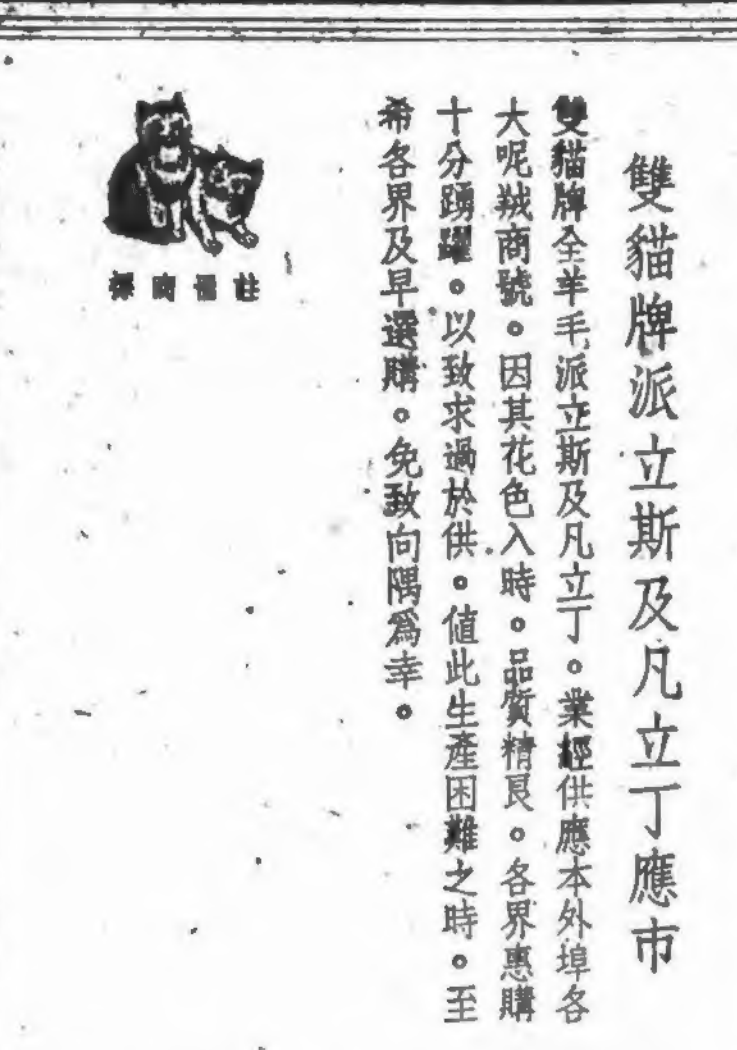 雙貓牌派立斯及凡立丁應市
雙貓牌全羊毛派立斯及凡立丁。業經供應本外埠各
大呢羢商號。因其花色入時。品質精良。各界惠購
十分踴躍。以致求過於供。値此生產困難之時。至
希各界及早選購。免致向隅爲幸。
註冊商標